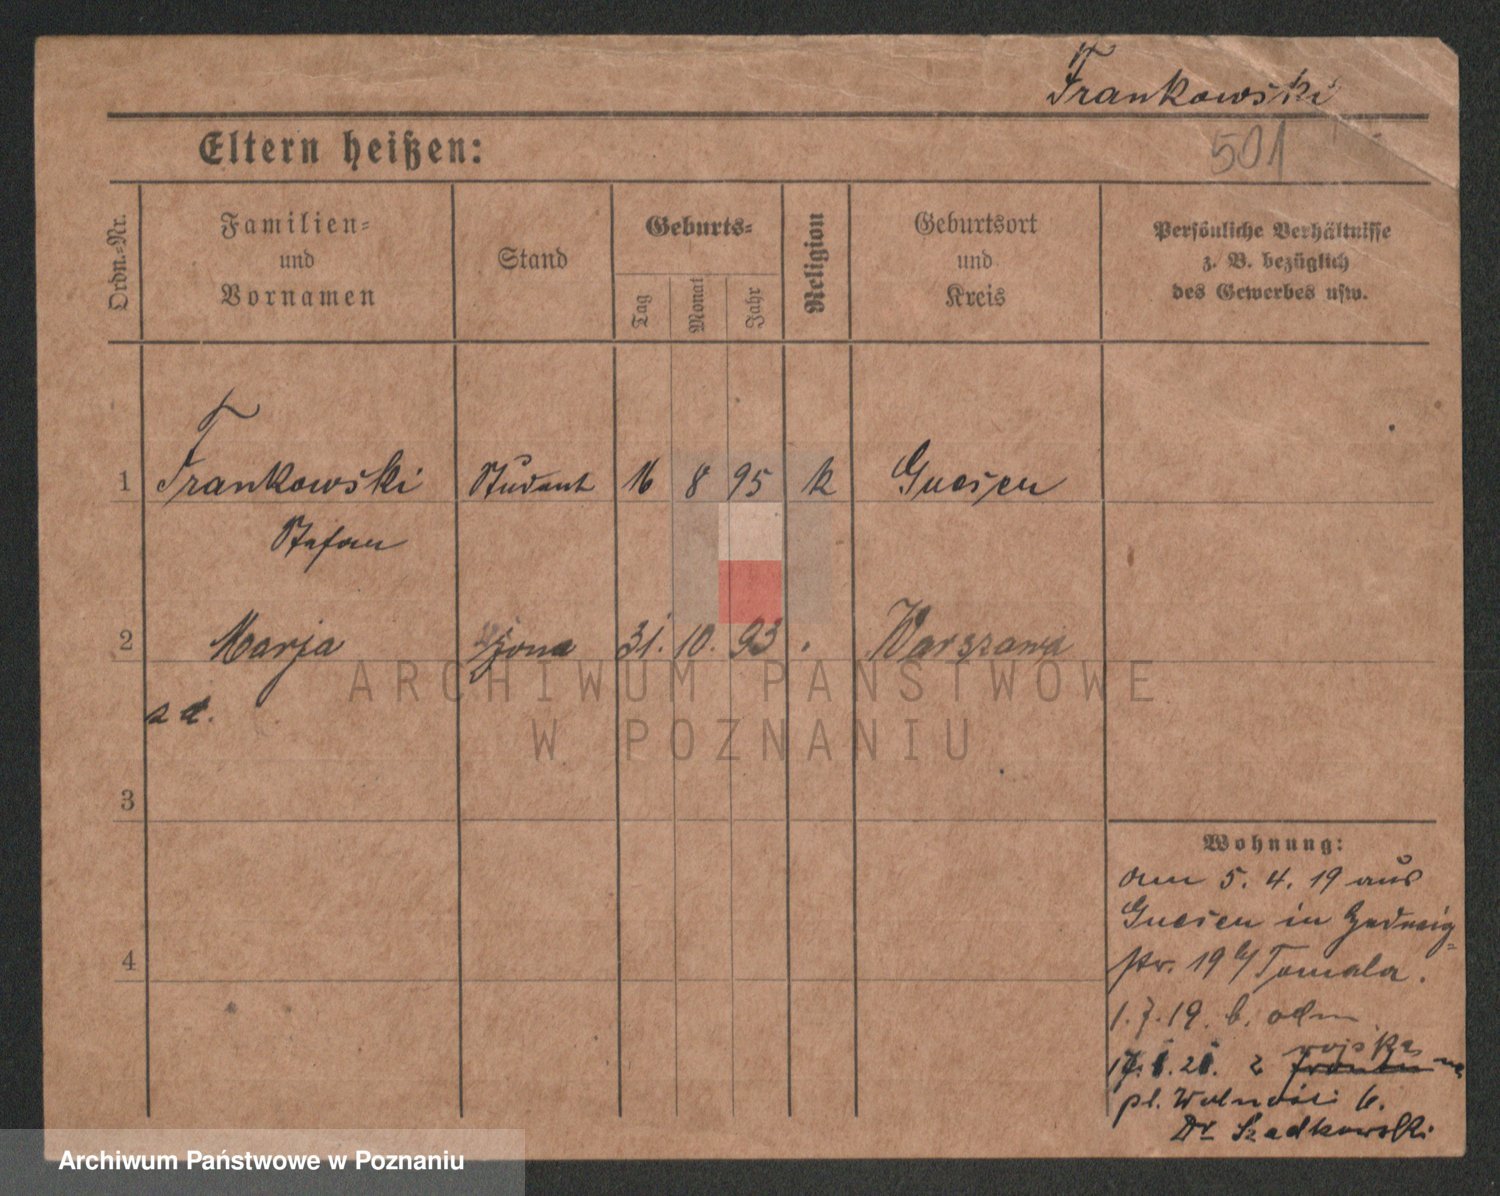 Frankowski
501
Eltern heißen:
Ordn.-Nr.
Familien-
und
Vornamen
Stand
Geburts-
Tag
Monat
Jahr
Religion
Geburtsort
und
Kreis
Persönliche Verhältnisse
z. B. bezüglich
des Gewerbes usw.
1 Frankowski Student 16 8 95 k Gnesen
Stefan
2 Marja żona 31. 10. 93 Warszawa
3
4
ARCHIWUM PAŃSTWOWE
W POZNANIU
Wohnung:
am 5. 4. 19 aus
Gnesen in Hedwig-
str. 19 b/ Tomala.
1. 7. 19. b. odm
wojska
z na
pl. Wolności 6.
Dr Szadkowski
Archiwum Państwowe w Poznaniu